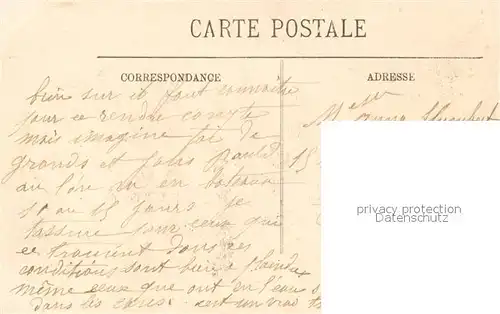 CARTE POSTALE
CORRESPONDANCE
ADRESSE
bien sur il faut connaitre
pour ce rendre compte
mais imagine toi de
grands et
au l'on en bateau
10 ou 15 jours je
tassure pour ceux qui
ce trouvent dans ces
conditions sont bien à plaindre
même ceux que ont de l'eau
dans les caves. cest un vrai
M
15
privacy protection
Datenschutz